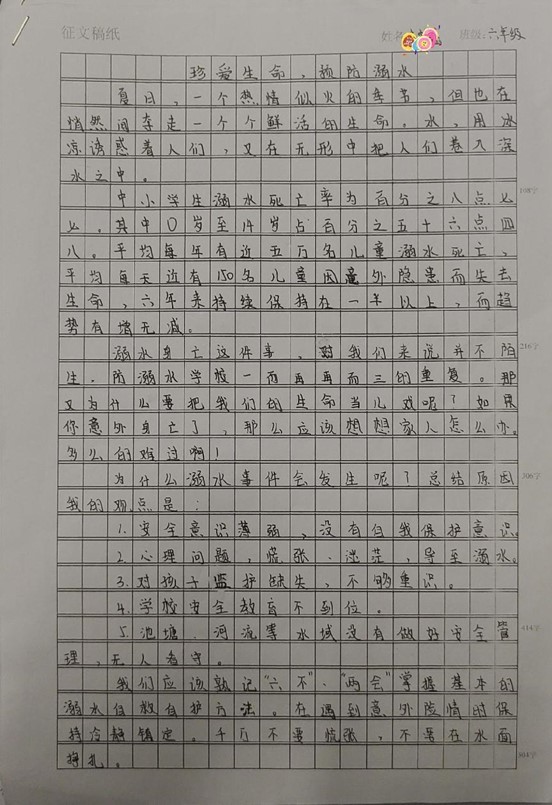 征文稿纸 姓名 班级:六年级
珍爱生命，预防溺水
夏日，一个热情似火的季节，但也在
悄然间夺走一个个鲜活的生命。水，用冰
凉诱惑着人们，又在无形中把人们卷入深
水之中。
中小学生溺水死亡率为百分之八点七 108字
七。其中0岁至14岁占百分之五十六点四
八。平均每年有近五万名儿童溺水死亡，
平均每天近有150名儿童因意外隐患而失去
生命，六年来持续保持在一年以上，而趋
势有增无减。
溺水身亡这件事，对我们来说并不陌 216字
生.防溺水学校一而再再而三的重复。那
又为什么要把我们的生命当儿戏呢？如果
你意外身亡了，那么应该想想家人怎么办.
多么的难过啊！
为什么溺水事件会发生呢？总结原因 306字
我的观点是：
1.安全意识薄弱，没有自我保护意识.
2.心理问题，慌张、迷茫，导至溺水.
3.对孩子监护缺失，不够重识。
4.学校安全教育不到位。
5.池塘、河流等水域没有做好安全管 414字
理，无人看守。
我们应该熟记“六不”、“两会”掌握基本的
溺水自救自护方法。在遇到意外险情时保
持冷静镇定。千万不要慌张，不要在水面
挣扎。 504字